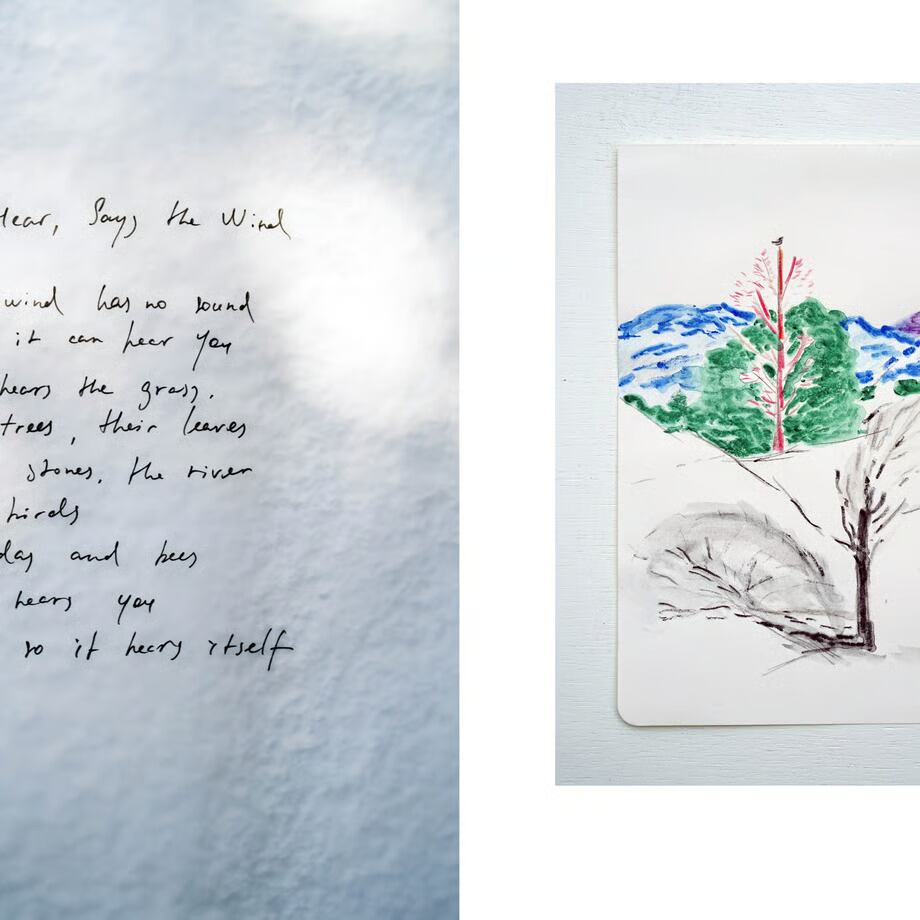 Hear, Says the Wind
wind has no sound
it can hear you
hears the grass,
trees, their leaves
stones, the river
birds
day and bees
hears you
so it hears itself